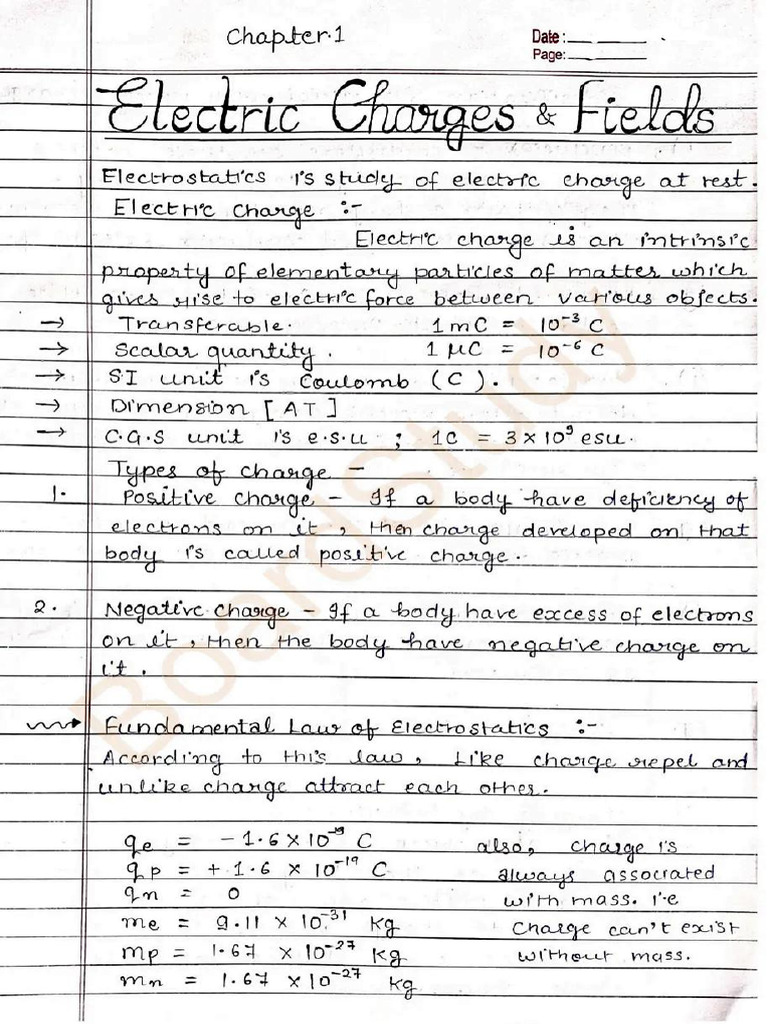 Chapter.1
Date:
Page:
Electric Charges & Fields
Electrostatics is study of electric charge at rest.
Electric Charge :-
Electric charge is an intrinsic
property of elementary particles of matter which
gives rise to electric force between various objects.
→ Transferable. 1 mC = 10⁻³ C
→ Scalar quantity. 1 μC = 10⁻⁶ C
→ S.I unit is Coulomb (C).
→ Dimension [AT]
→ C.G.S unit is e.s.u ; 1C = 3 × 10⁹ esu.
Types of charge –
1. Positive charge – If a body have deficiency of
electrons on it, then charge developed on that
body is called positive charge.
2. Negative charge – If a body have excess of electrons
on it, then the body have negative charge on
it.
Fundamental Law of Electrostatics :-
According to this law, Like charge repel and
unlike charge attract each other.
qe = – 1.6 × 10⁻¹⁹ C also, charge is
qp = + 1.6 × 10⁻¹⁹ C always associated
qn = 0 with mass. i.e
me = 9.11 × 10⁻³¹ kg charge can't exist
mp = 1.67 × 10⁻²⁷ kg without mass.
mn = 1.67 × 10⁻²⁷ kg
BoardStudy